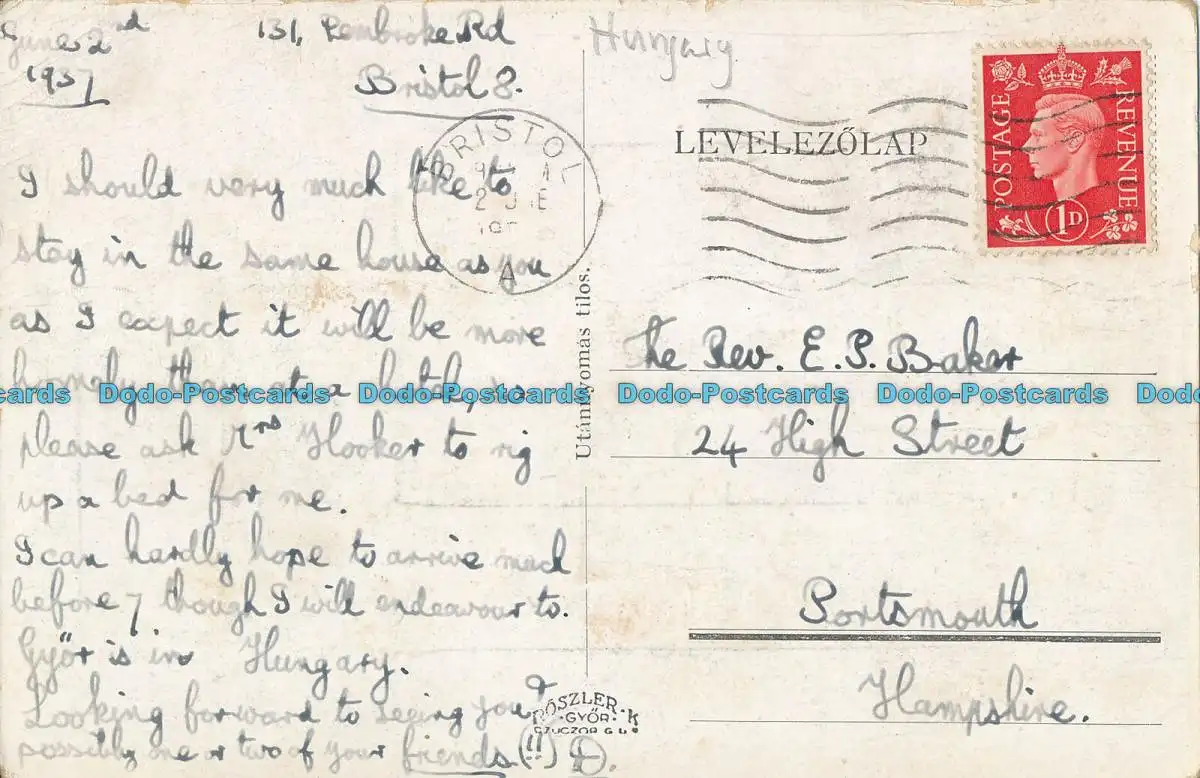 June 2nd
1937
131, Pembroke Rd
Bristol 8.
I should very much like to
stay in the same house as you
as I expect it will be more
homely than at a hotel, so
please ask Mrs Hooker to rig
up a bed for me.
I can hardly hope to arrive much
before 7 though I will endeavour to.
Győr is in Hungary.
Looking forward to seeing you &
possibly one or two of your friends (!!)
BRISTOL
2 JNE
A
Utánnyomás tilos.
RÓSZLER · K
· GYŐR ·
CZUCZOR G U.
Hungary
LEVELEZŐLAP
POSTAGE REVENUE
1D
The Rev. E. P. Baker
24 High Street
Portsmouth
Hampshire.
Dodo-Postcards Dodo-Postcards Dodo-Postcards Dodo-Postcards Dodo-Postcards